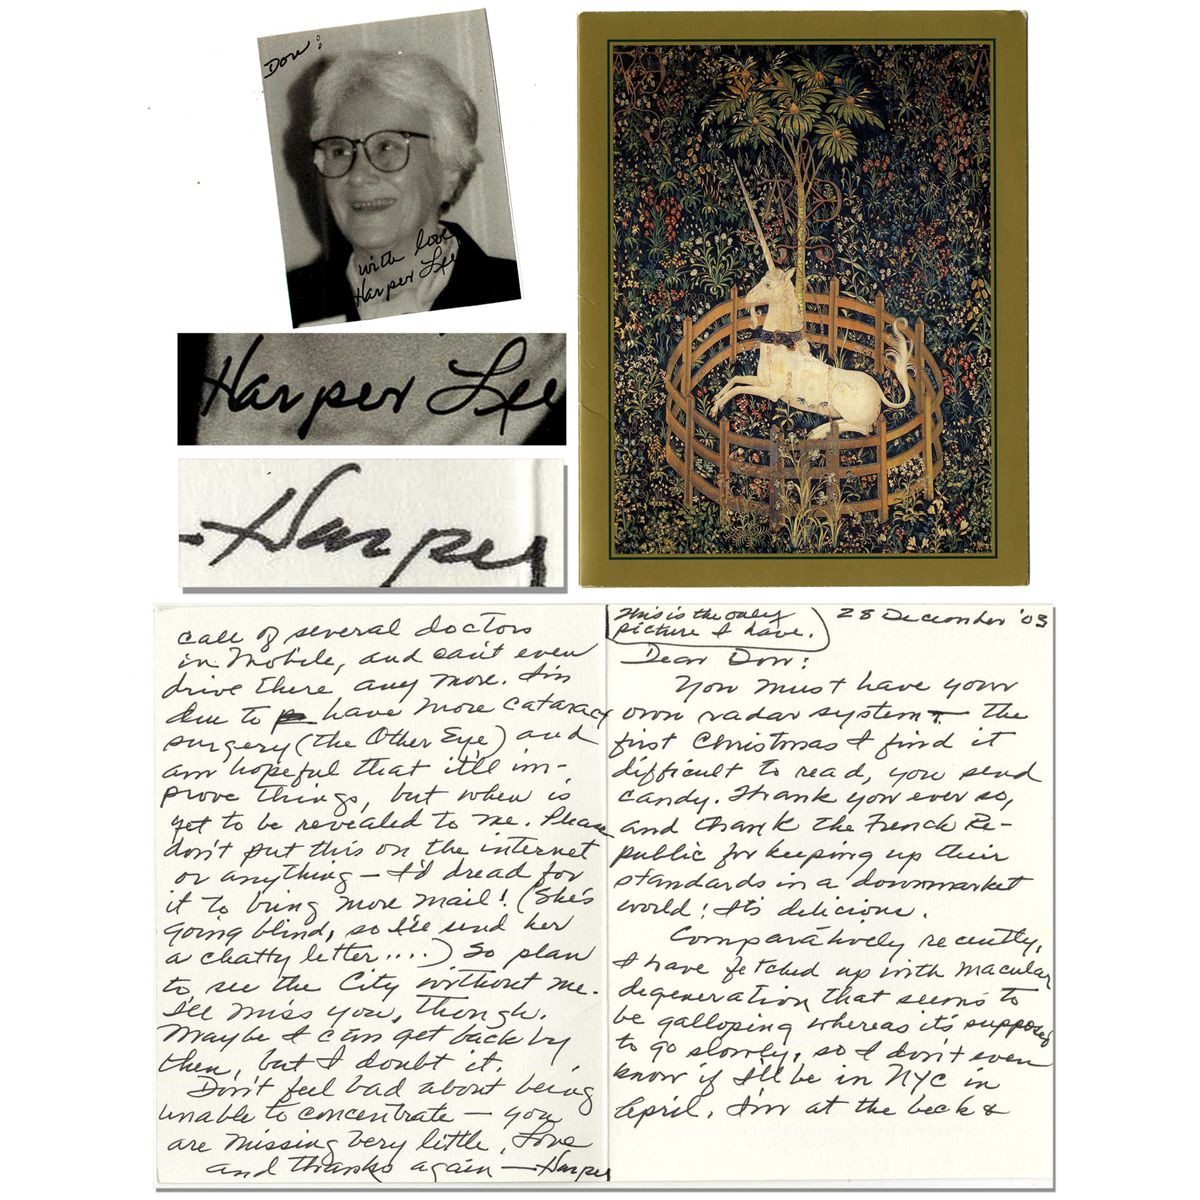 Don:
with love
Harper Lee
Harper Lee
-Harper
This is the only
picture I have.
28 December '03
Dear Don:
You must have your
own radar system - the
first Christmas I find it
difficult to read, you send
candy. Thank you ever so,
and thank the French Re-
public for keeping up their
standards in a downmarket
world! It's delicious.
Comparatively recently,
I have fetched up with macular
degeneration that seems to
be galloping whereas it's supposed
to go slowly, so I don't even
know if I'll be in NYC in
April. I'm at the beck &
call of several doctors
in Mobile, and can't even
drive there any more. I'm
due to have more cataract
surgery (the Other Eye) and
am hopeful that it'll im-
prove things, but when is
yet to be revealed to me. Please
don't put this on the internet
or anything - I'd dread for
it to bring more mail! (She's
going blind, so I'll send her
a chatty letter....) So plan
to see the City without me.
I'll miss you, though.
Maybe I can get back by
then, but I doubt it.
Don't feel bad about being
unable to concentrate - you
are missing very little. Love
and thanks again - Harper